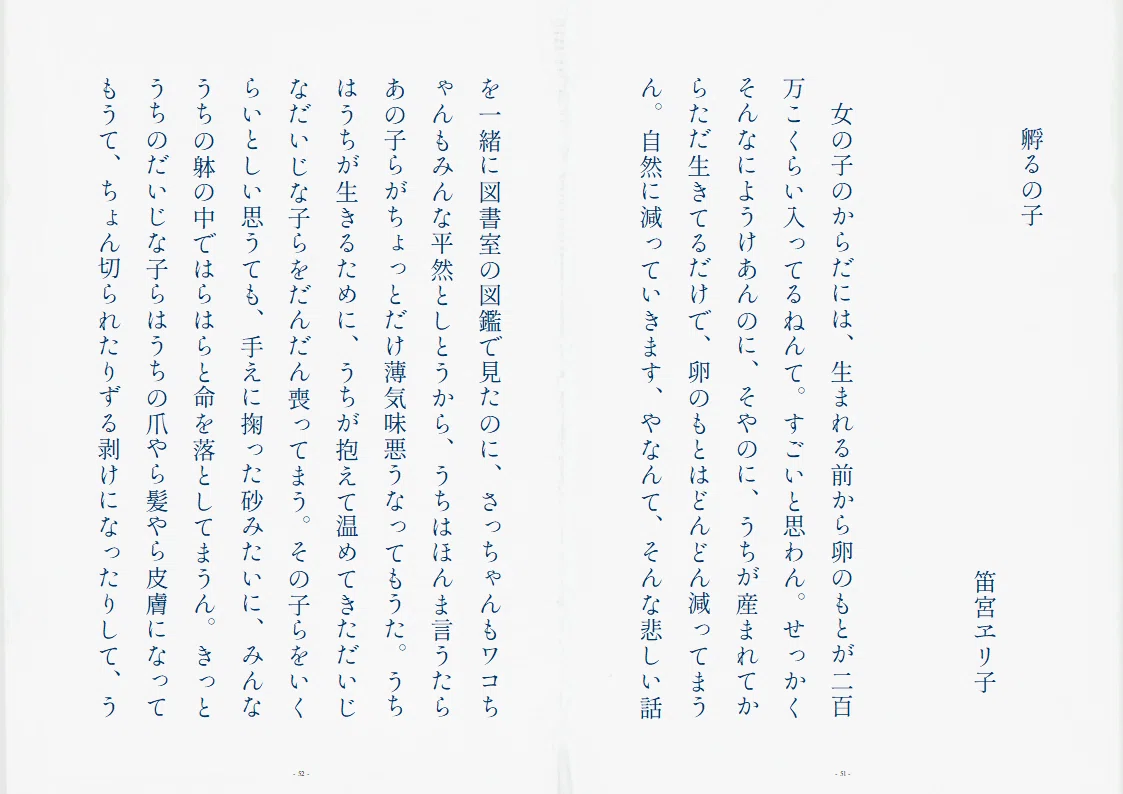 孵るの子
笛宮ヱリ子
女の子のからだには、生まれる前から卵のもとが二百
万こくらい入ってるねんて。すごいと思わん。せっかく
そんなにようけあんのに、そやのに、うちが産まれてか
らただ生きてるだけで、卵のもとはどんどん減ってまう
ん。自然に減っていきます、やなんて、そんな悲しい話
- 51 -
を一緒に図書室の図鑑で見たのに、さっちゃんもワコち
ゃんもみんな平然としとうから、うちはほんま言うたら
あの子らがちょっとだけ薄気味悪うなってもうた。うち
はうちが生きるために、うちが抱えて温めてきただいじ
なだいじな子らをだんだん喪ってまう。その子らをいく
らいとしい思うても、手えに掬った砂みたいに、みんな
うちの躰の中ではらはらと命を落としてまうん。きっと
うちのだいじな子らはうちの爪やら髪やら皮膚になって
もうて、ちょん切られたりずる剥けになったりして、う
- 52 -